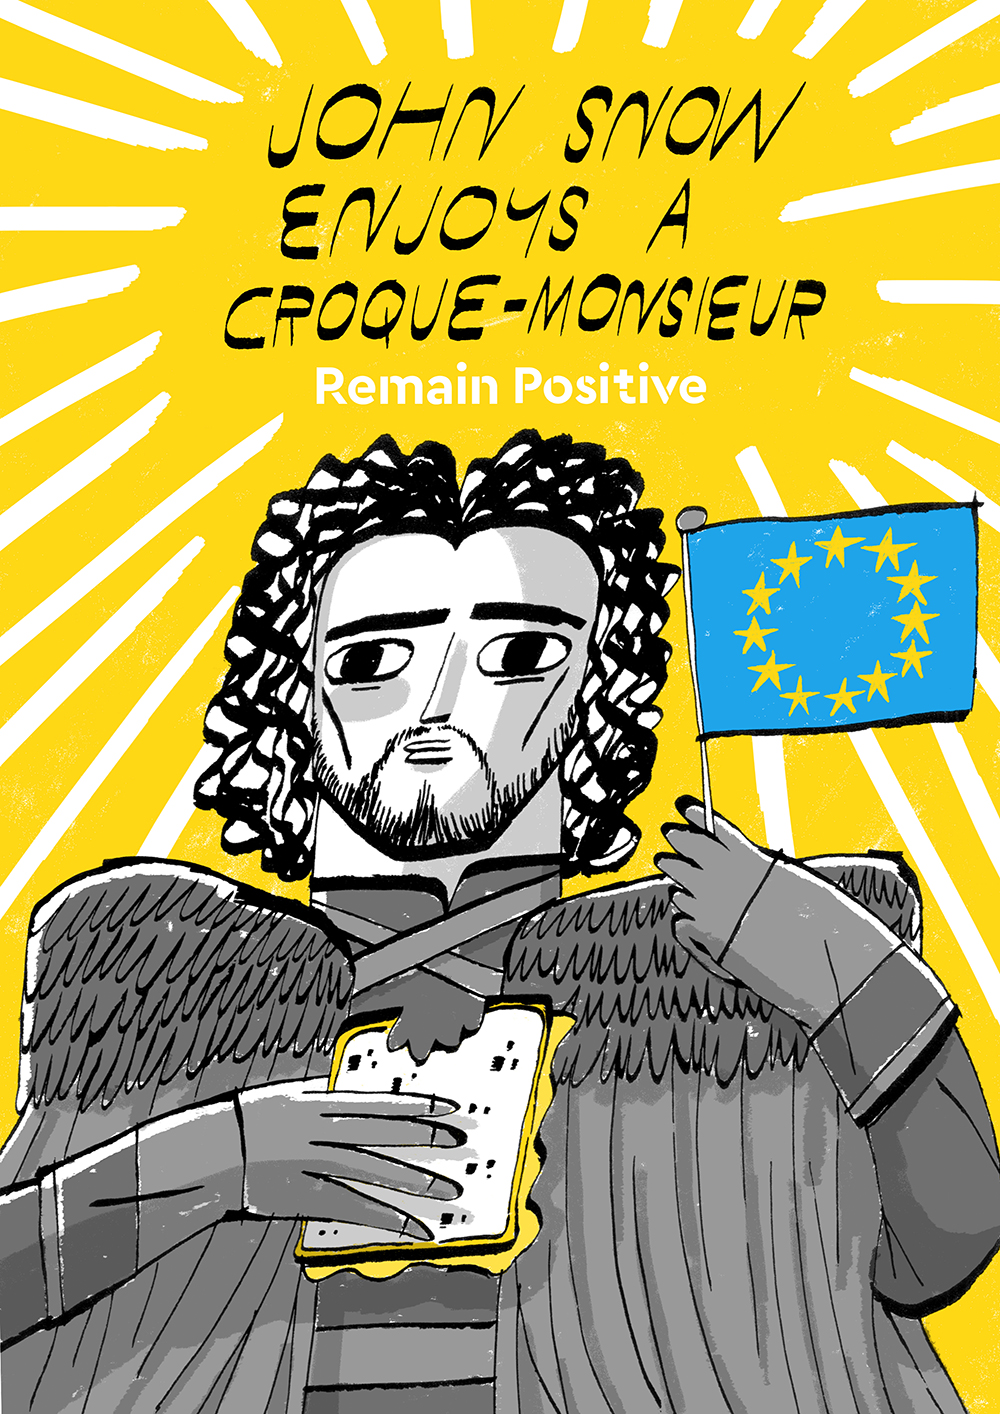 JOHN SNOW
ENJOYS A
CROQUE-MONSIEUR
Remain Positive